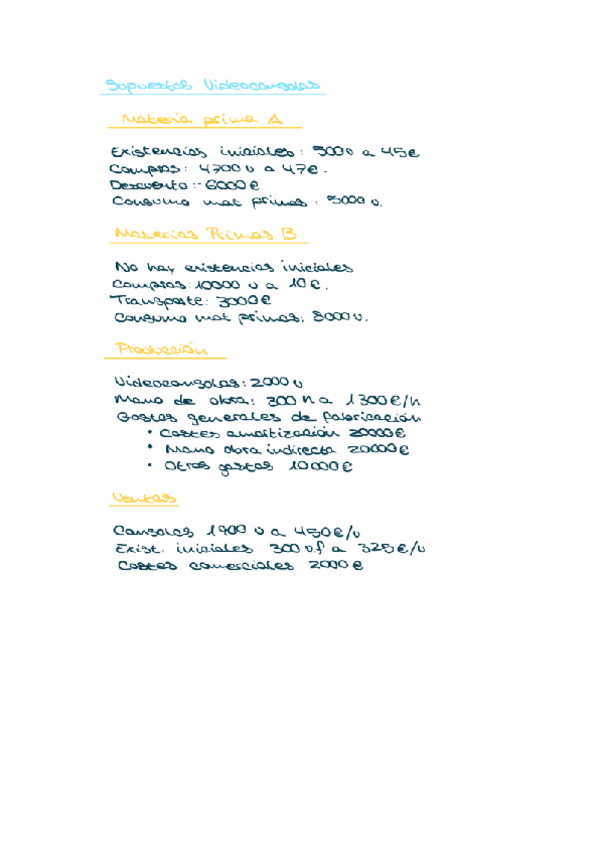 Supuestos Videoconsolas
Materia prima A
Existencias iniciales: 5000 a 45€
Compras: 4700 u a 47€.
Descuento: -6000€
Consumo mat primas: 5000 u.
Materias Primas B
No hay existencias iniciales
Compras: 10000 u a 10€.
Transporte: 3000€
Consumo mat primas: 8000 u.
Producción
Videoconsolas: 2000 u
Mano de obra: 300 h a 1300€/h
Gastos generales de fabricación
• Costes amoitización 20000€
• Mano obra indirecta 20000€
• Otros gastos 10000€
Ventas
Consolas 1900 u a 450€/u
Exist. iniciales 300 u.f a 325€/u
Costes comerciales 2000€